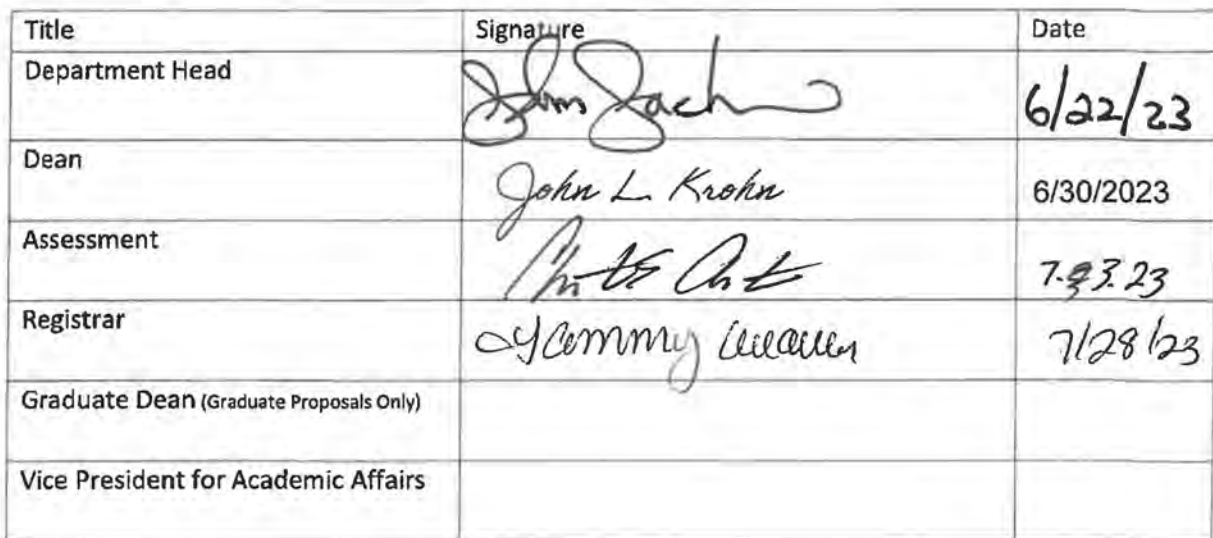 Title Signature Date
Department Head John 6/22/23
Dean John L. Krohn 6/30/2023
Assessment
Registrar Tammy 7/28/23
Graduate Dean (Graduate Proposals Only)
Vice President for Academic Affairs